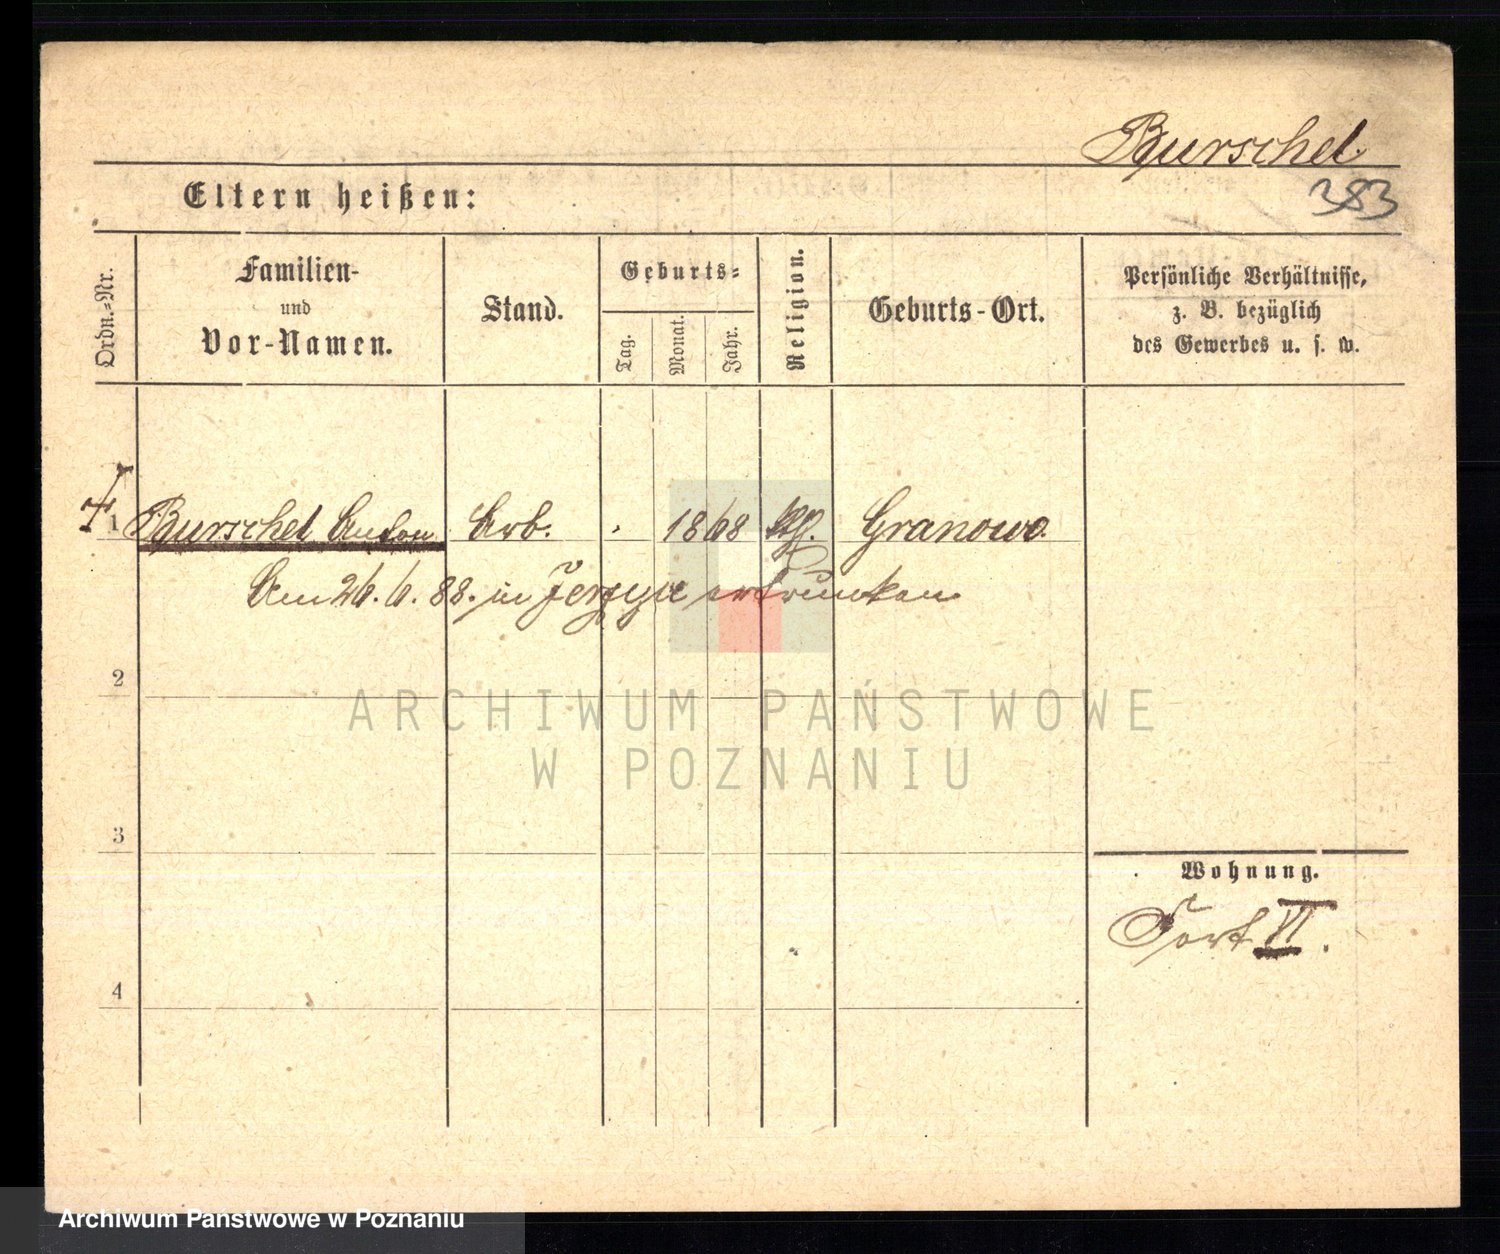 Burschel
383
Eltern heißen:
Ordn.-Nr.
Familien-
und
Vor-Namen.
Stand.
Geburts-
Tag.
Monat.
Jahr.
Religion.
Geburts-Ort.
Persönliche Verhältnisse,
z. B. bezüglich
des Gewerbes u. s. w.
1 Burschel Anton Arb. 1868 kth. Granowo.
Am 26. 6. 88. in Jerzyce ertrunken
2
ARCHIWUM PAŃSTWOWE
W POZNANIU
3
Wohnung.
Fort VI.
4
Archiwum Państwowe w Poznaniu